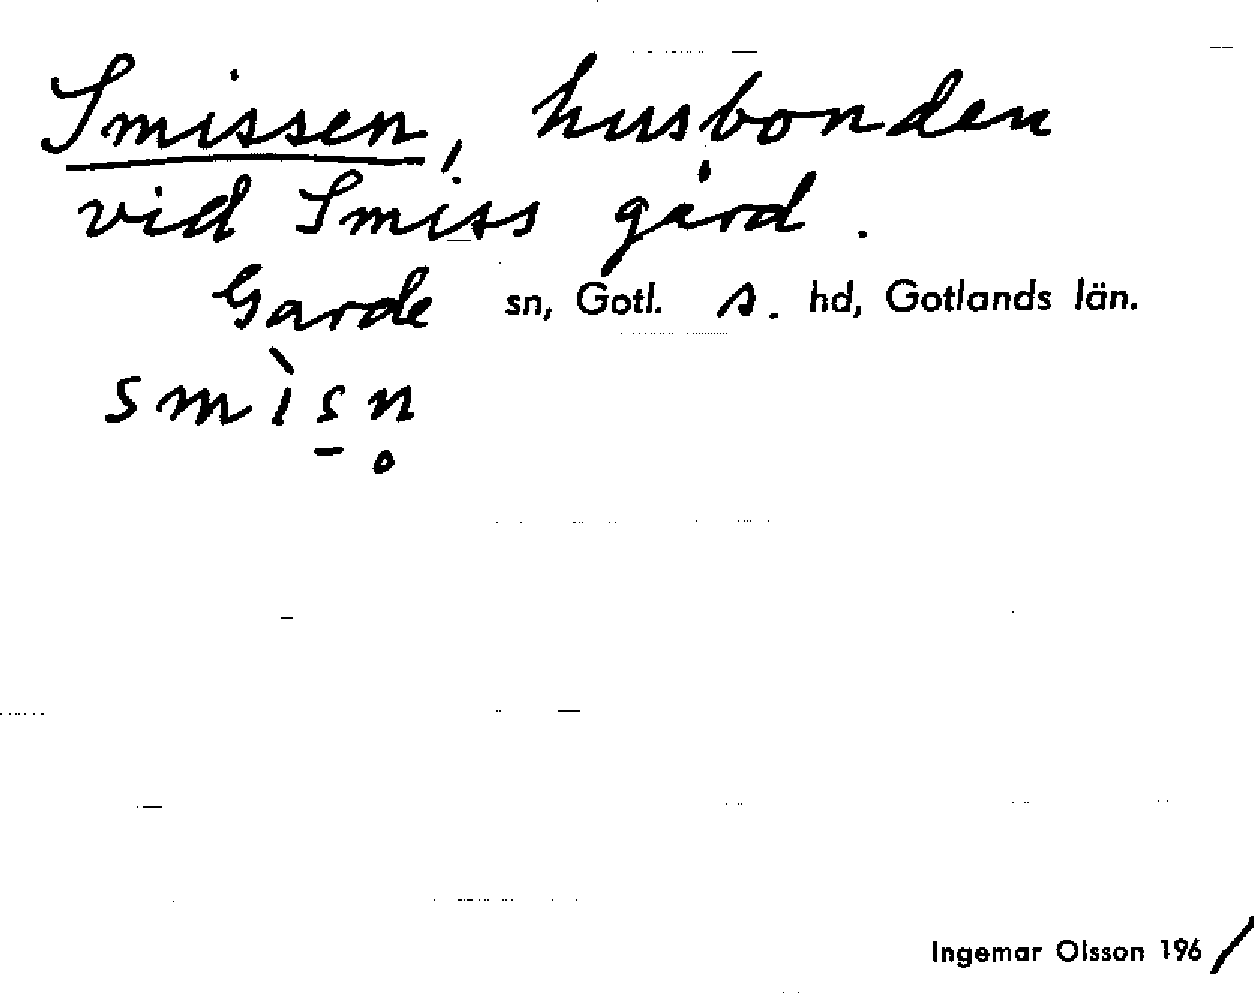 Smissen, husbonden
vid Smiss gård.
Garde sn, Gotl. s. hd, Gotlands län.
smìs̠n̥
Ingemar Olsson 1961